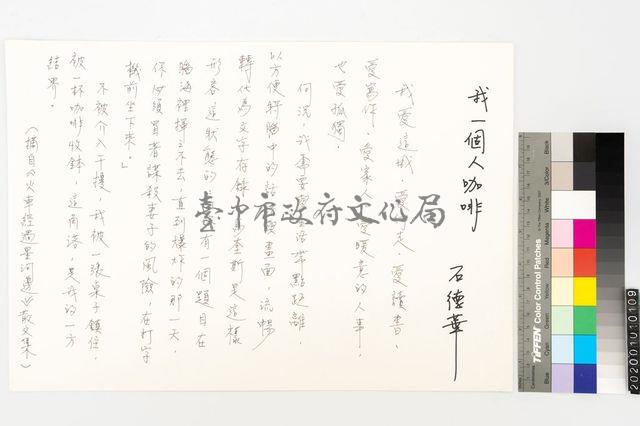 我一個人咖啡
石德華
我愛這城,愛行走、愛讀書、
愛寫作、愛家人、愛暖意的人事,
也愛孤獨。
何況,我需要與生活帶點距離,
以方便將腦中的話 畫面,流暢
轉化為文字存檔 馬奎斷是這樣
形容這狀態的 有一個題目在
腦海裡揮之不去,直到爆炸的那一天,
你必須冒者謀殺妻子的風險,在打字
機前坐下來。」
不被介入干擾,我被一張桌子鎮住,
被一杯咖啡收鉢,這角落,是我的一方
結界。
(摘自《火車經過星河邊》散文集)
臺中市政府文化局
TIFFEN Color Control Patches
Blue
Cyan
Green
Yellow
Red
Magenta
White
3/Color
Black
2020010109